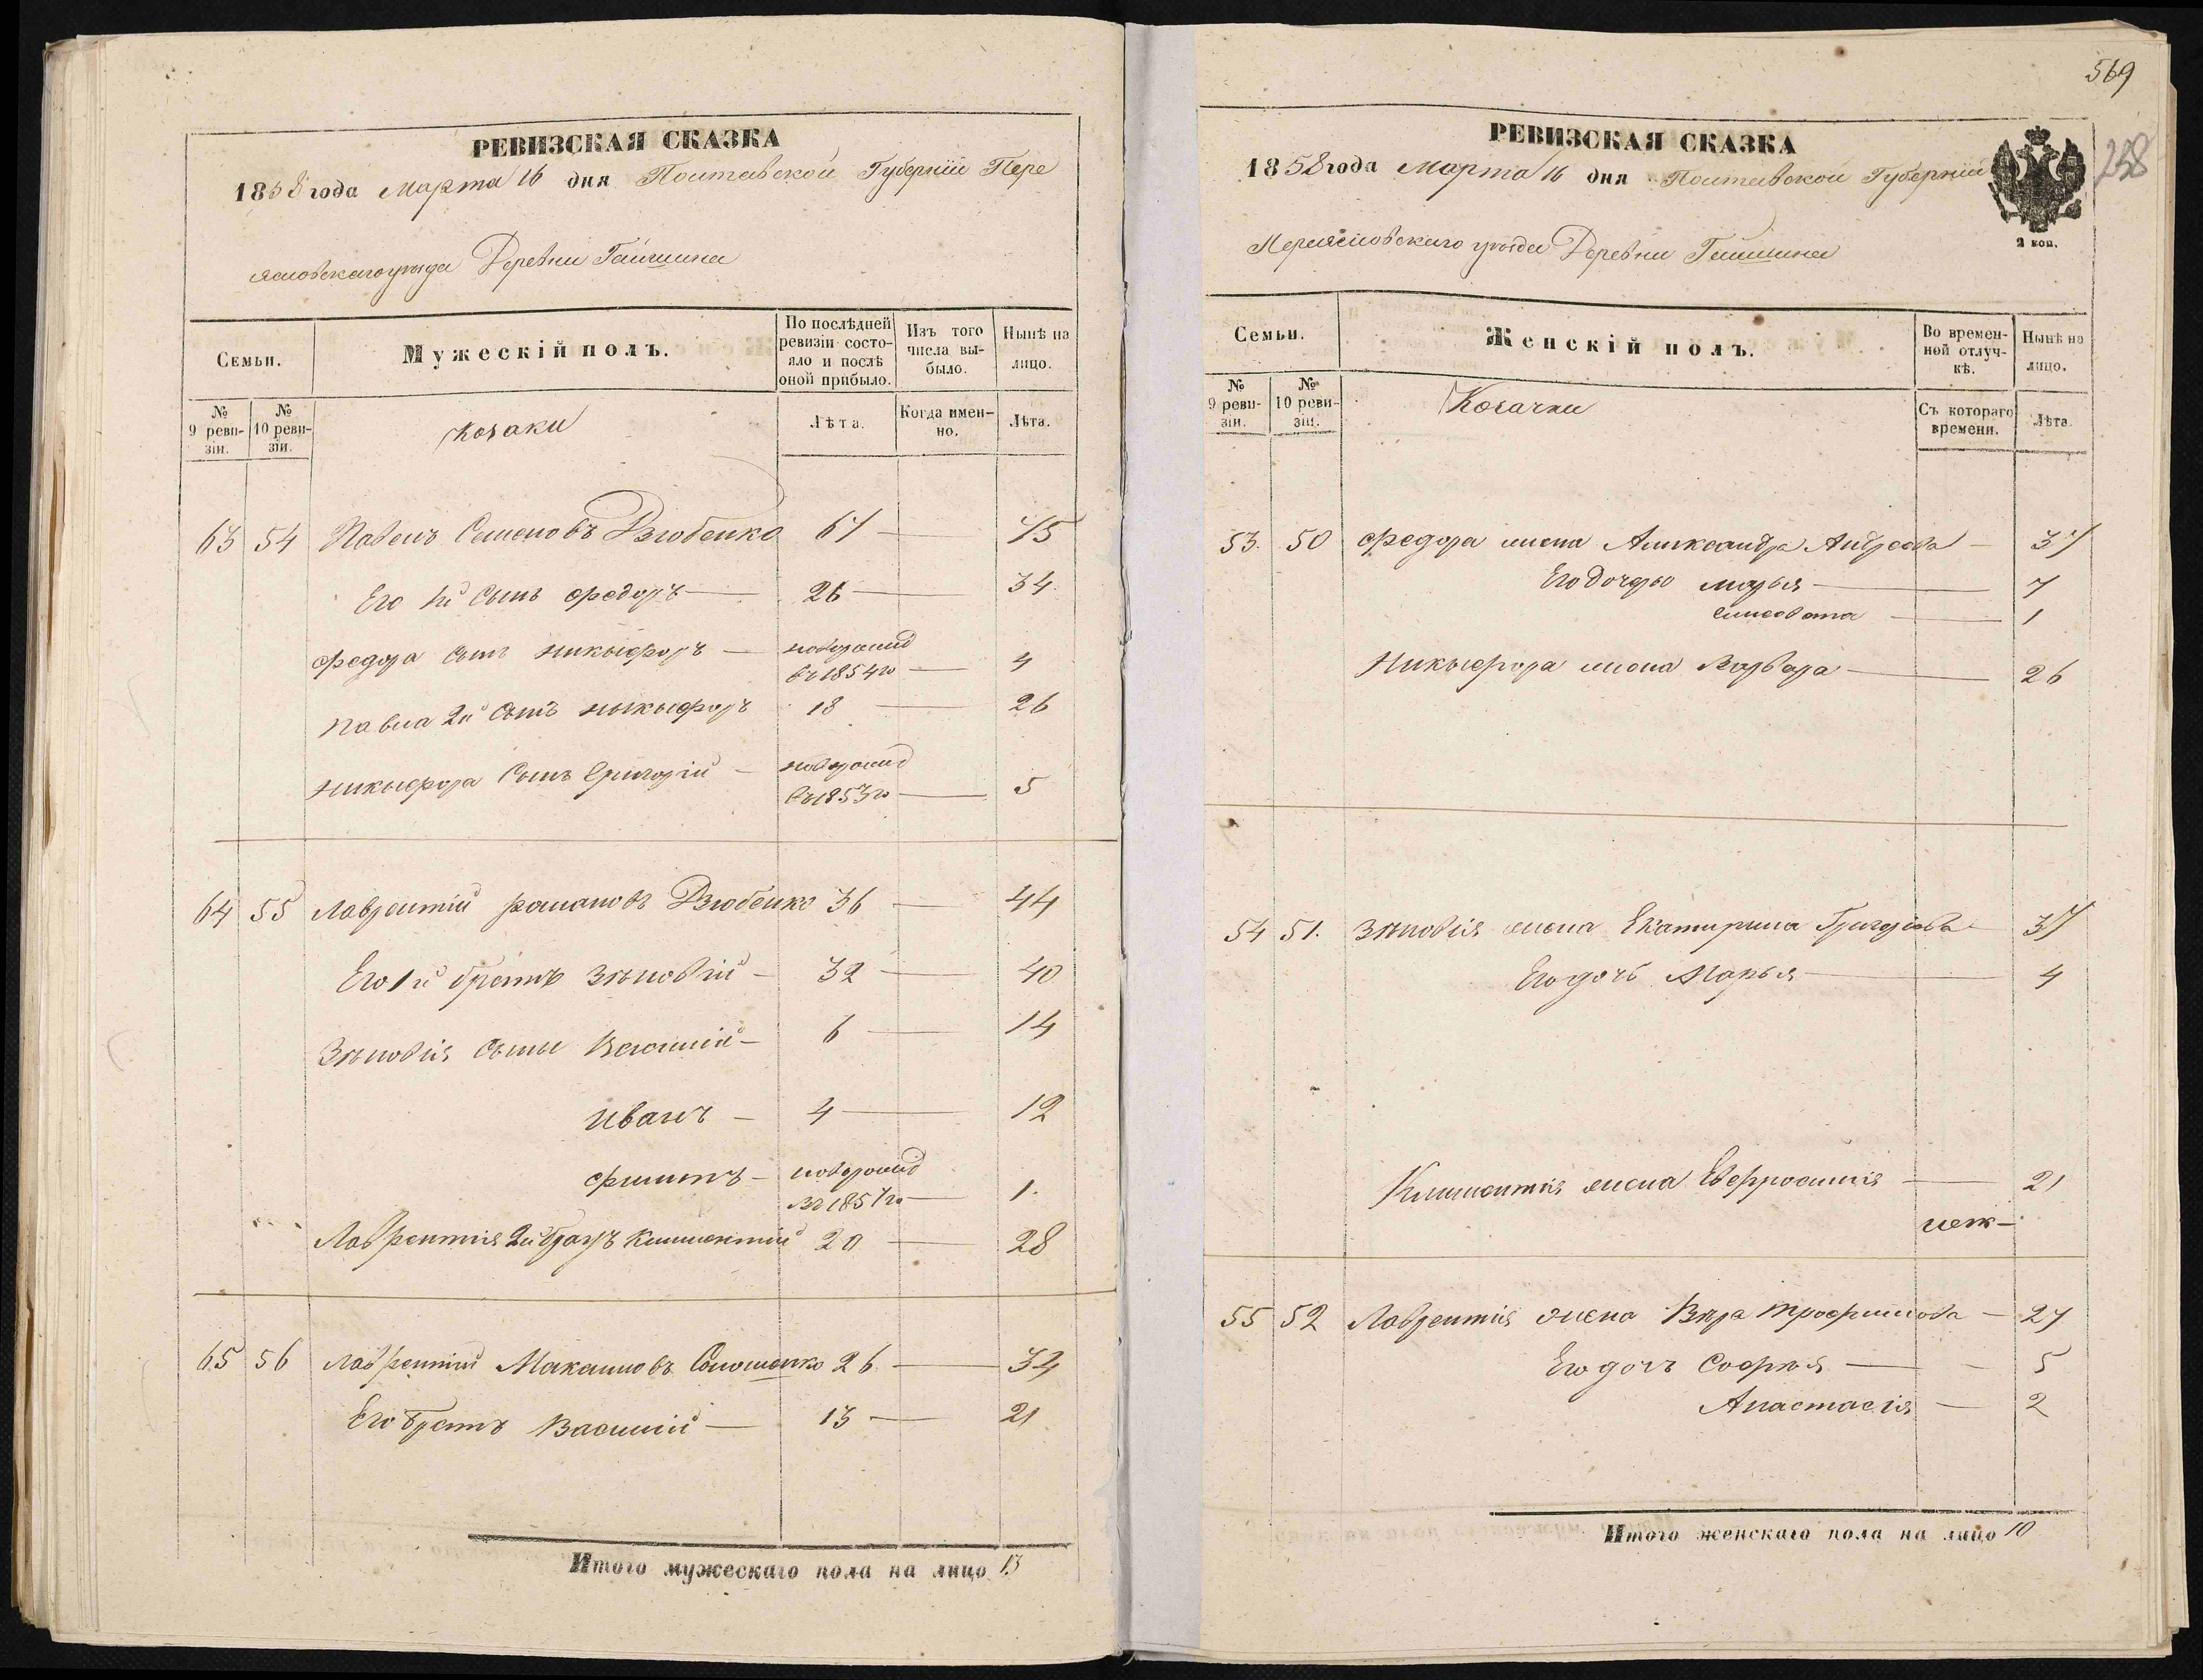 РЕВИЗСКАЯ СКАЗКА
1858 года Марта 16 дня Полтавской Губерніи Пере
яславскаго уѣзда Деревни Гайшина
Семьи.
Мужескій полъ.
По послѣдней ревизіи состояло и послѣ оной прибыло.
Изъ того числа выбыло.
Нынѣ на лицо.
№ 9 ревизіи.
№ 10 ревизіи.
Козаки
Лѣта.
Когда именно.
Лѣта.
63 54 Павелъ Семеновъ Дзюбенко 67 — 75
Его 1й Сынъ Федоръ — 26 — 34
Федора Сынъ Никыфоръ — новорожд
въ 1854 го — 4
Павла 2й Сынъ Ныкыфоръ 18 — 26
Никыфора Сынъ Григорій — новорожд
въ 1853 го — 5
64 55 Лаврентій Романовъ Дзюбенко 36 — 44
Его 1й братъ Зѣновій — 32 — 40
Зѣновія Сыны Василій — 6 — 14
Иванъ — 4 — 12
Филипъ — новорожд
въ 1857 го — 1.
Лаврентія 2й братъ Климентій 20 — 28
65 56 Лаврентій Макаловъ 26 — 34
Его братъ Василій — 13 — 21
Итого мужескаго пола на лицо 13
569
258
РЕВИЗСКАЯ СКАЗКА
1858 года Марта 16 дня Полтавской Губерніи
2 коп.
Переясловскаго уѣзда Деревни Гайшина
Семьи.
Женскій полъ.
Во временной отлучкѣ.
Нынѣ на лицо.
№ 9 ревизіи.
№ 10 ревизіи.
Козачки
Съ котораго времени.
Лѣта.
53. 50 Федора жена Александра Андреева — 37
Его дочери Марья — 7
Елисавета — 1
Никыфора жена Варвара — 26
54 51. Зѣновія жена Екатирина Григорьева — 37
Его дочь Марья — 4
Климентія жена Евфросинія — 21
нѣт —
55 52 Лаврентія жена Вѣра Трофимова — 27
Его дочь Софья — 5
Анастасія — 2
Итого женскаго пола на лицо 10